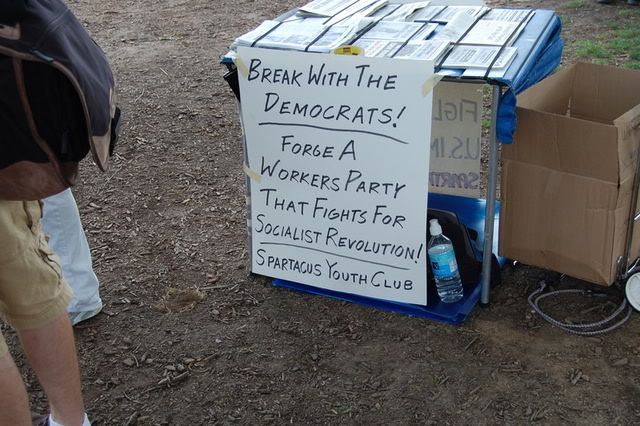 BREAK WITH THE
DEMOCRATS!
FORGE A
WORKERS PARTY
THAT FIGHTS FOR
SOCIALIST REVOLUTION!
SPARTACUS YOUTH CLUB
FIGH
U.S. IM
SPART